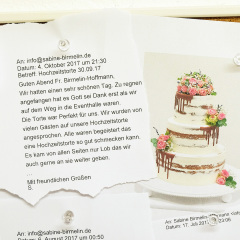 An: info@sabine-birmelin.de
Datum: 4. Oktober 2017 um 21:30
Betreff: Hochzeitstorte 30.09.17
Guten Abend Fr. Birmelin-Hoffmann,
Wir hatten einen sehr schönen Tag. Zu regnen
angefangen hat es Gott sei Dank erst als wir
auf dem Weg in die Eventhalle waren.
Die Torte war Perfekt für uns. Wir wurden von
vielen Gästen auf unsere Hochzeitstorte
angesprochen. Alle waren begeistert das
eine Hochzeitstorte so gut schmecken kann.
Es kam von allen Seiten nur Lob das wir
auch gerne an sie weiter geben.
Mit freundlichen Grüßen
S.
An: info@sabine-birmelin.de
Datum: 6. August 2017 um 00:50
An: Sabine-Birmelin
Datum: 17. Juli